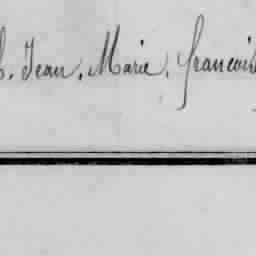 Jean, Marie, francois